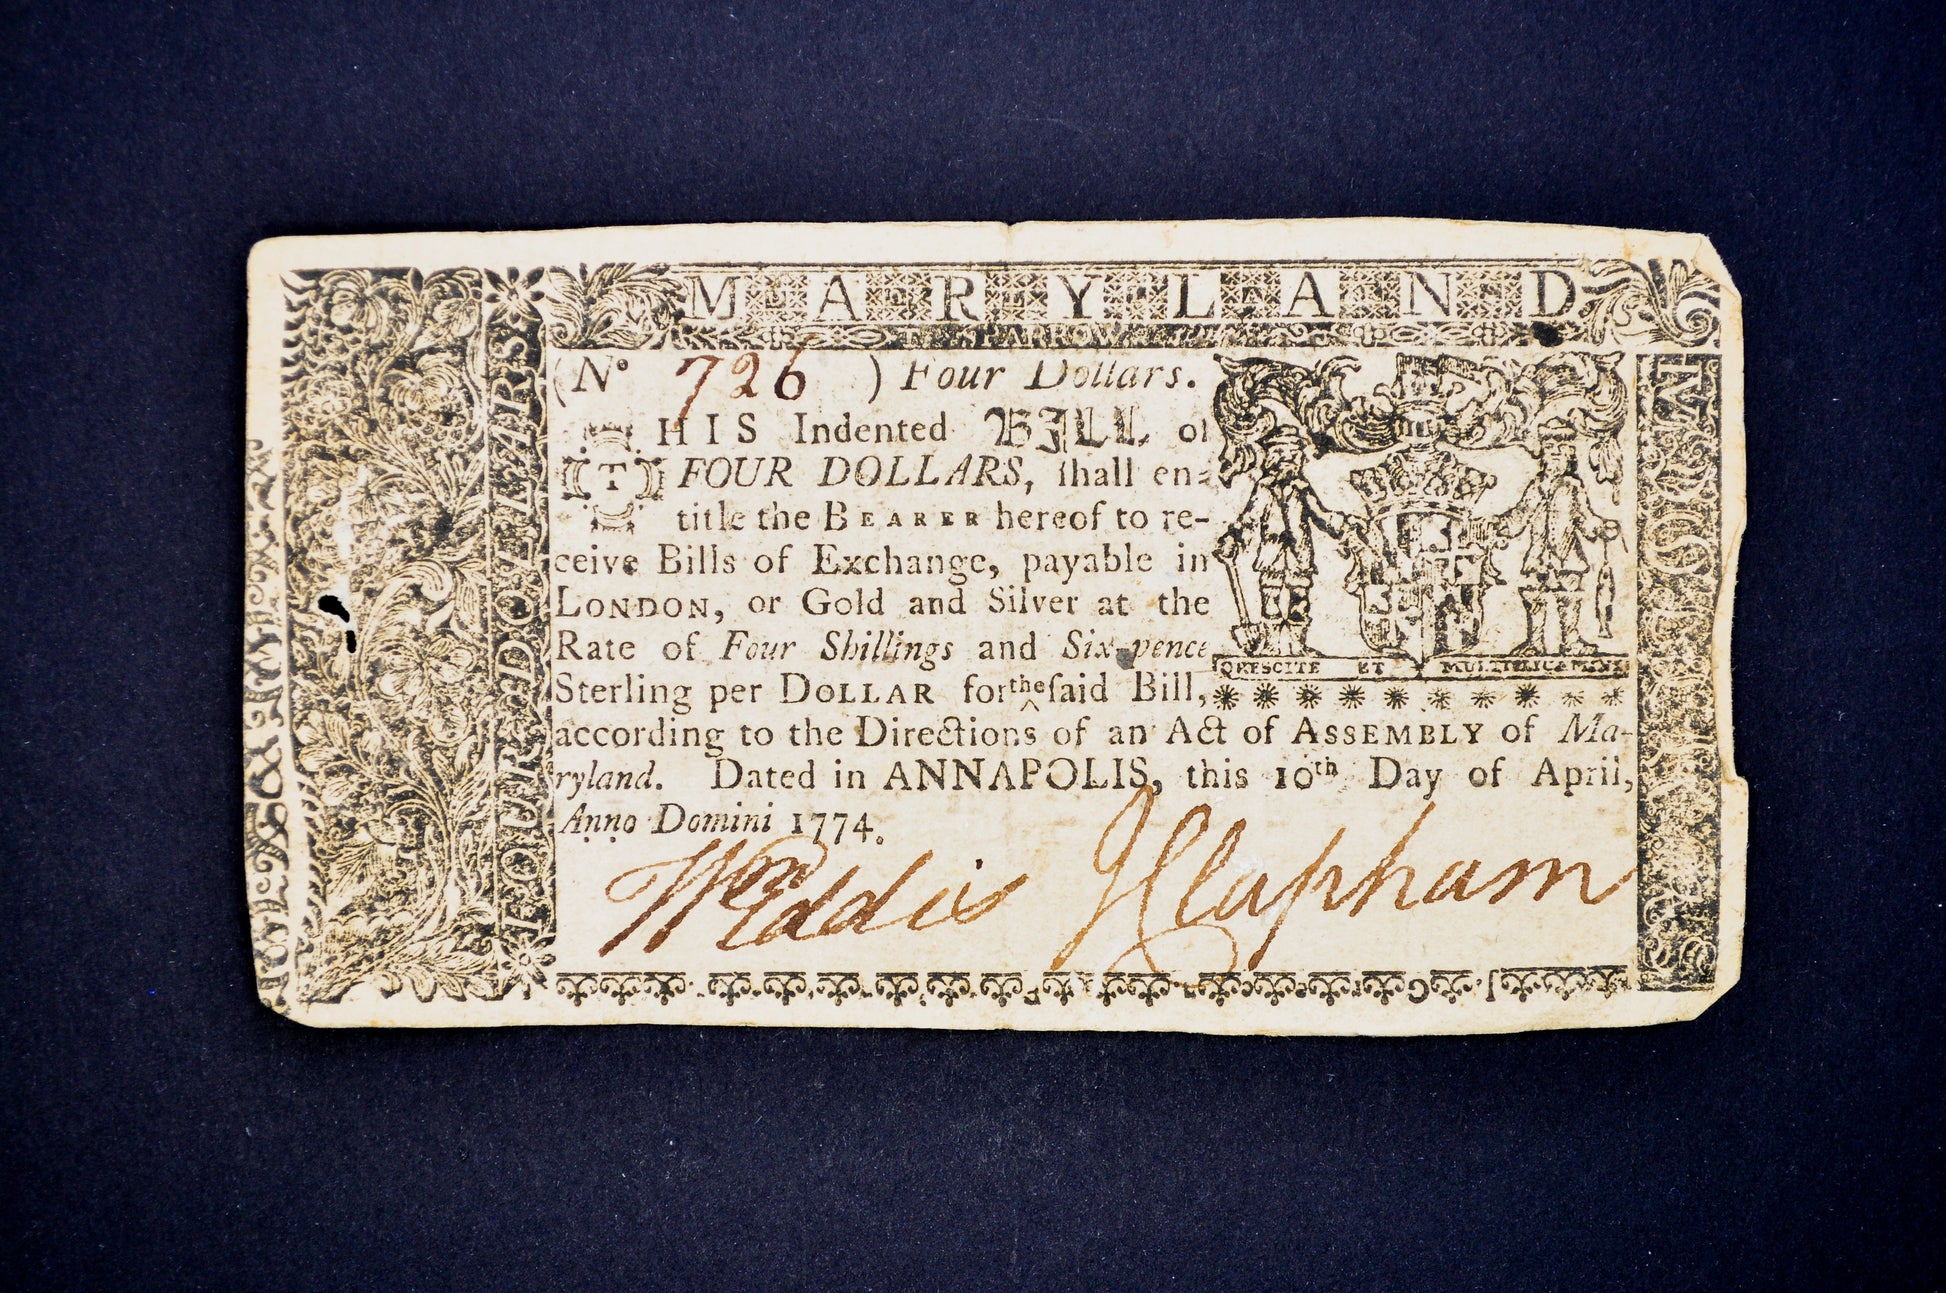 MARYLAND
T. SPARROW
(No 726 ) Four Dollars.
THIS Indented BILL of
FOUR DOLLARS, ſhall en-
title the BEARER hereof to re-
ceive Bills of Exchange, payable in
LONDON, or Gold and Silver at the
Rate of Four Shillings and Six-pence
Sterling per DOLLAR for the ſaid Bill,
according to the Directions of an Act of ASSEMBLY of Ma-
ryland. Dated in ANNAPOLIS, this 10th Day of April,
Anno Domini 1774.
CRESCITE ET MULTIPLICAMINI
Wm Eddis J Clapham
FOUR DOLLARS